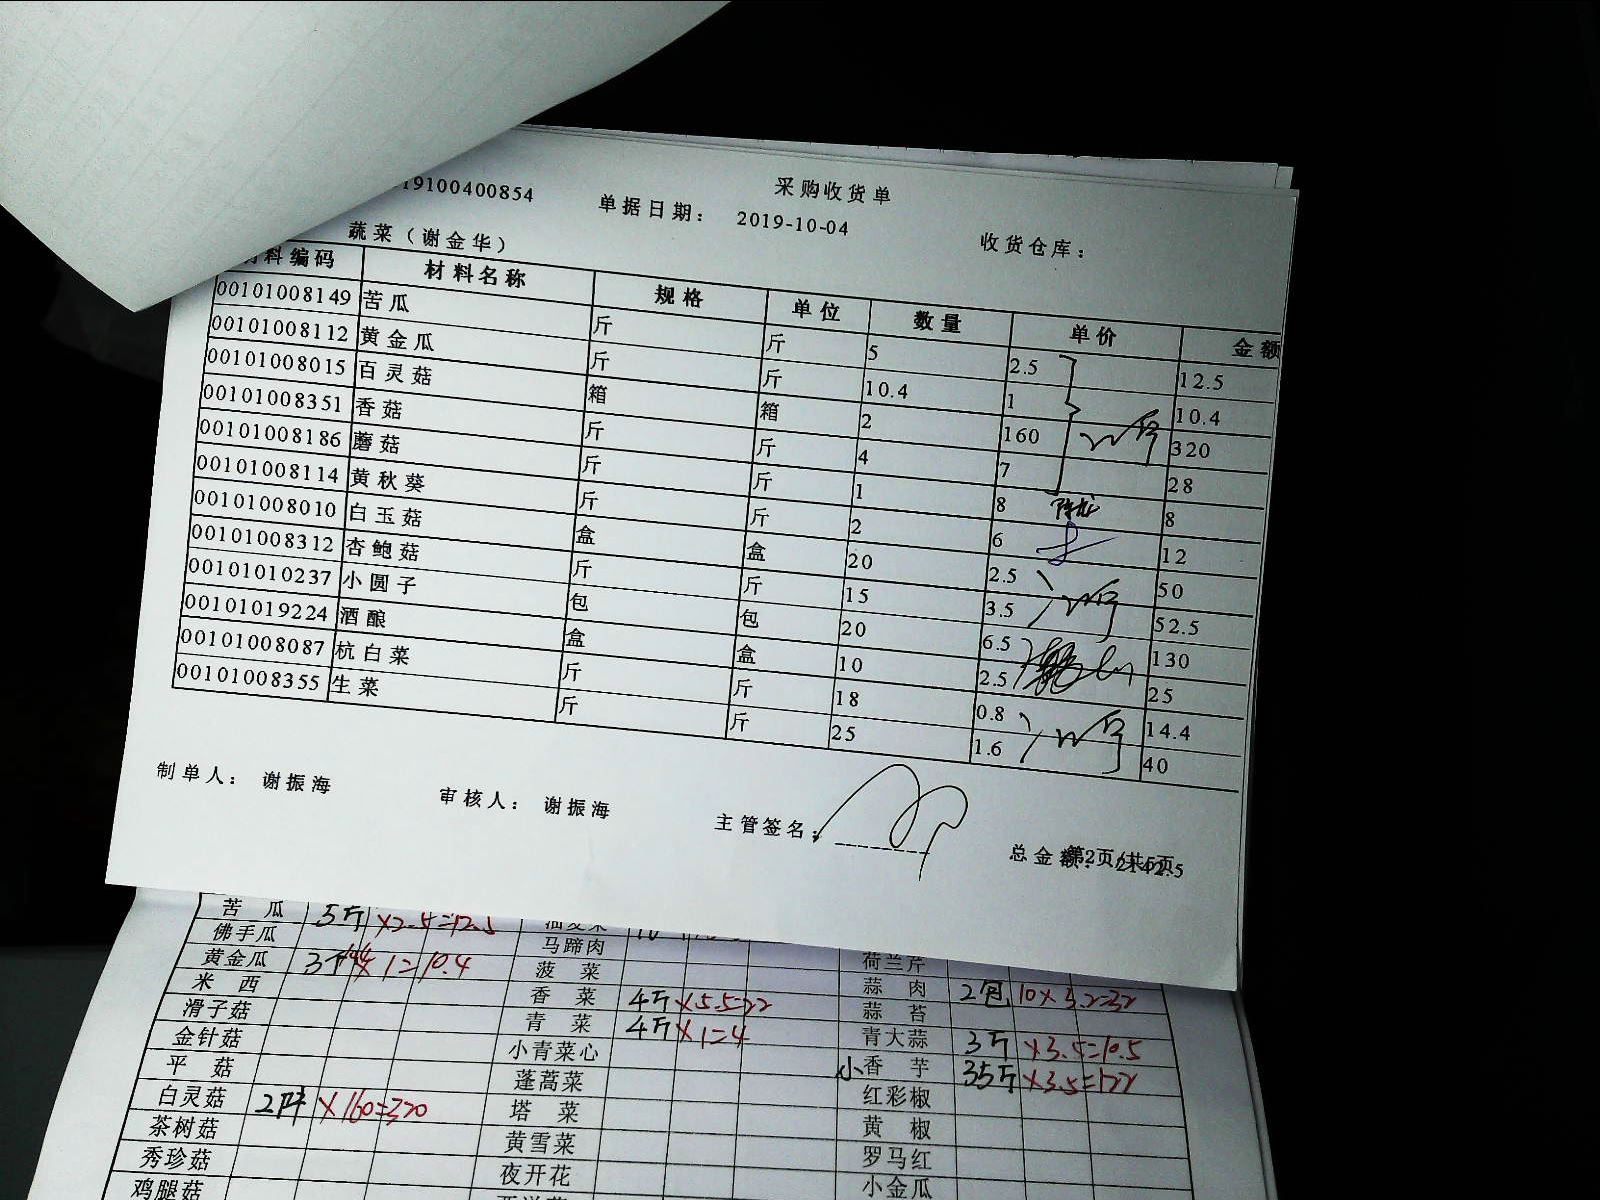 采购收货单
19100400854 单据日期： 2019-10-04 收货仓库：
蔬菜（谢金华）
料编码 材料名称 规格 单位 数量 单价 金额
00101008149 苦瓜 斤 斤 5 2.5 12.5
00101008112 黄金瓜 斤 斤 10.4 1 10.4
00101008015 百灵菇 箱 箱 2 160 320
00101008351 香菇 斤 斤 4 7 28
00101008186 蘑菇 斤 斤 1 8 8
00101008114 黄秋葵 斤 斤 2 6 12
00101008010 白玉菇 盒 盒 20 2.5 50
00101008312 杏鲍菇 斤 斤 15 3.5 52.5
00101010237 小圆子 包 包 20 6.5 130
00101019224 酒酿 盒 盒 10 2.5 25
00101008087 杭白菜 斤 斤 18 0.8 14.4
00101008355 生菜 斤 斤 25 1.6 40
制单人： 谢振海 审核人： 谢振海 主管签名：
总金额：
苦瓜 5斤 ×2.5=12.5
佛手瓜 马蹄肉 荷兰芹
黄金瓜 ×1=10.4 菠菜 蒜肉 2包 10×3.2=32
米西 香菜 4斤 ×5.5=22 蒜苔
滑子菇 青菜 4斤 ×1=4 青大蒜 3斤 ×3.5=10.5
金针菇 小青菜心 小香芋 35斤
平菇 蓬蒿菜 红彩椒
白灵菇 ×160=320 塔菜 黄椒
茶树菇 黄雪菜 罗马红
秀珍菇 夜开花 小金瓜
鸡腿菇